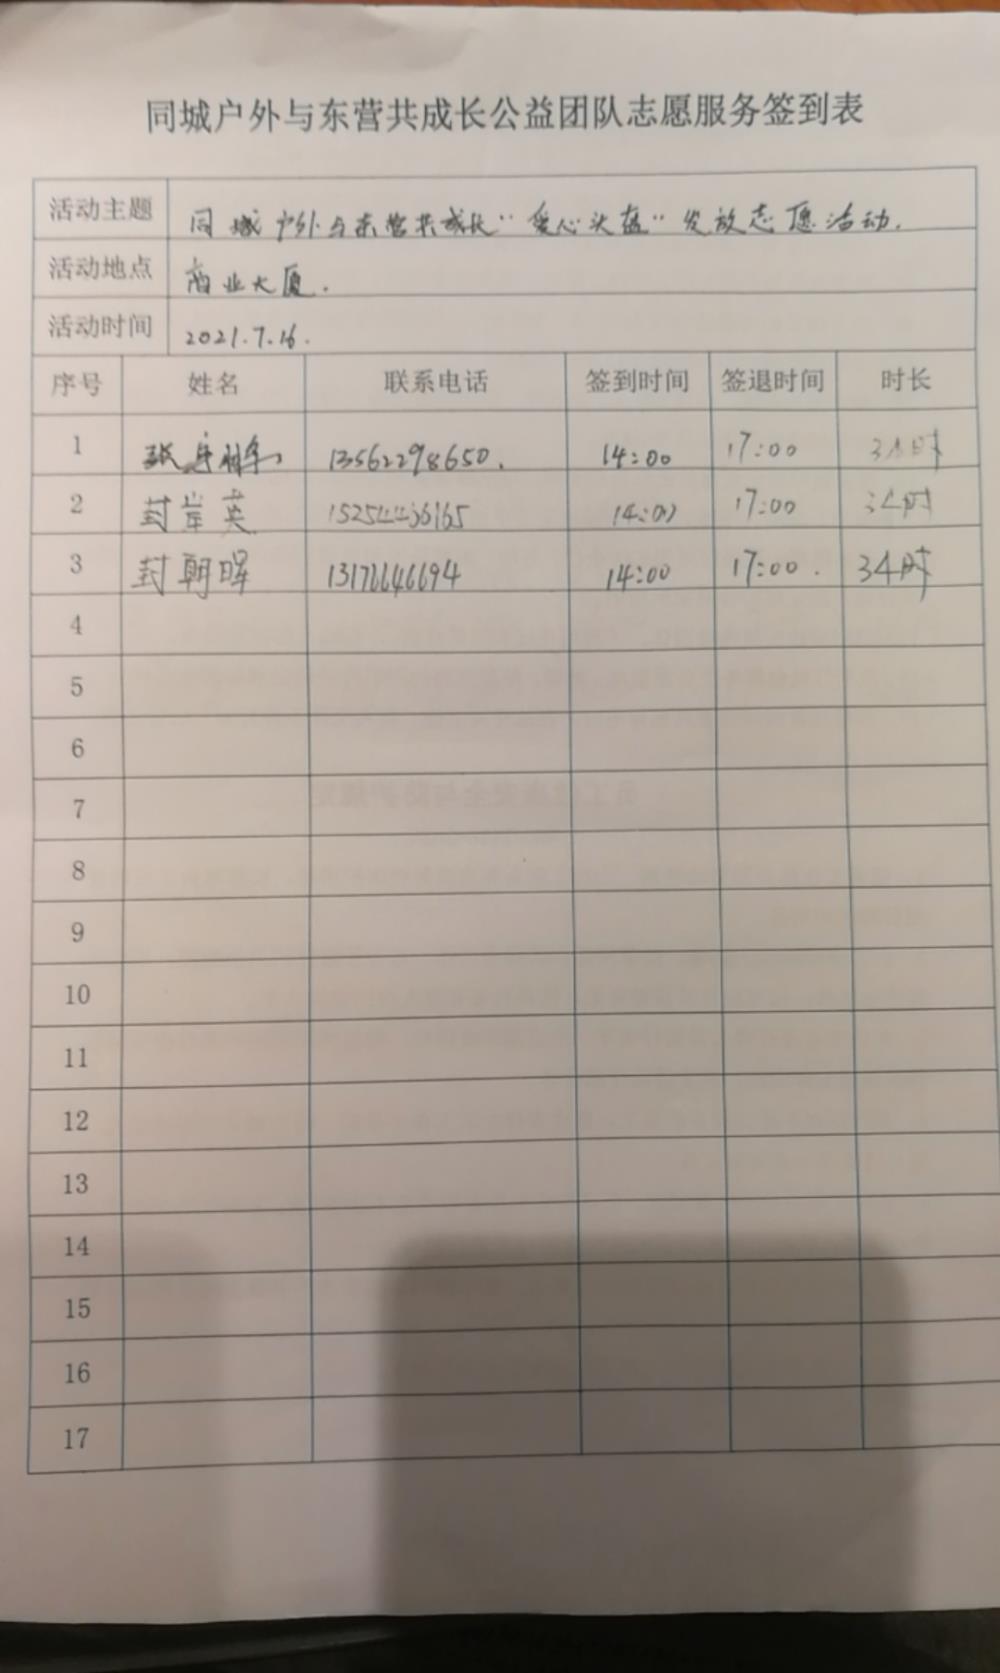 同城户外与东营共成长公益团队志愿服务签到表
活动主题 同城户外与东营共成长"爱心头盔"发放志愿活动.
活动地点 商业大厦.
活动时间 2021.7.16.
序号 姓名 联系电话 签到时间 签退时间 时长
1 张 13562298650. 14:00 17:00 3小时
2 封岸英 15254436165 14:00 17:00 3小时
3 封朝晖 13176646694 14:00 17:00. 3小时
4
5
6
7
8
9
10
11
12
13
14
15
16
17